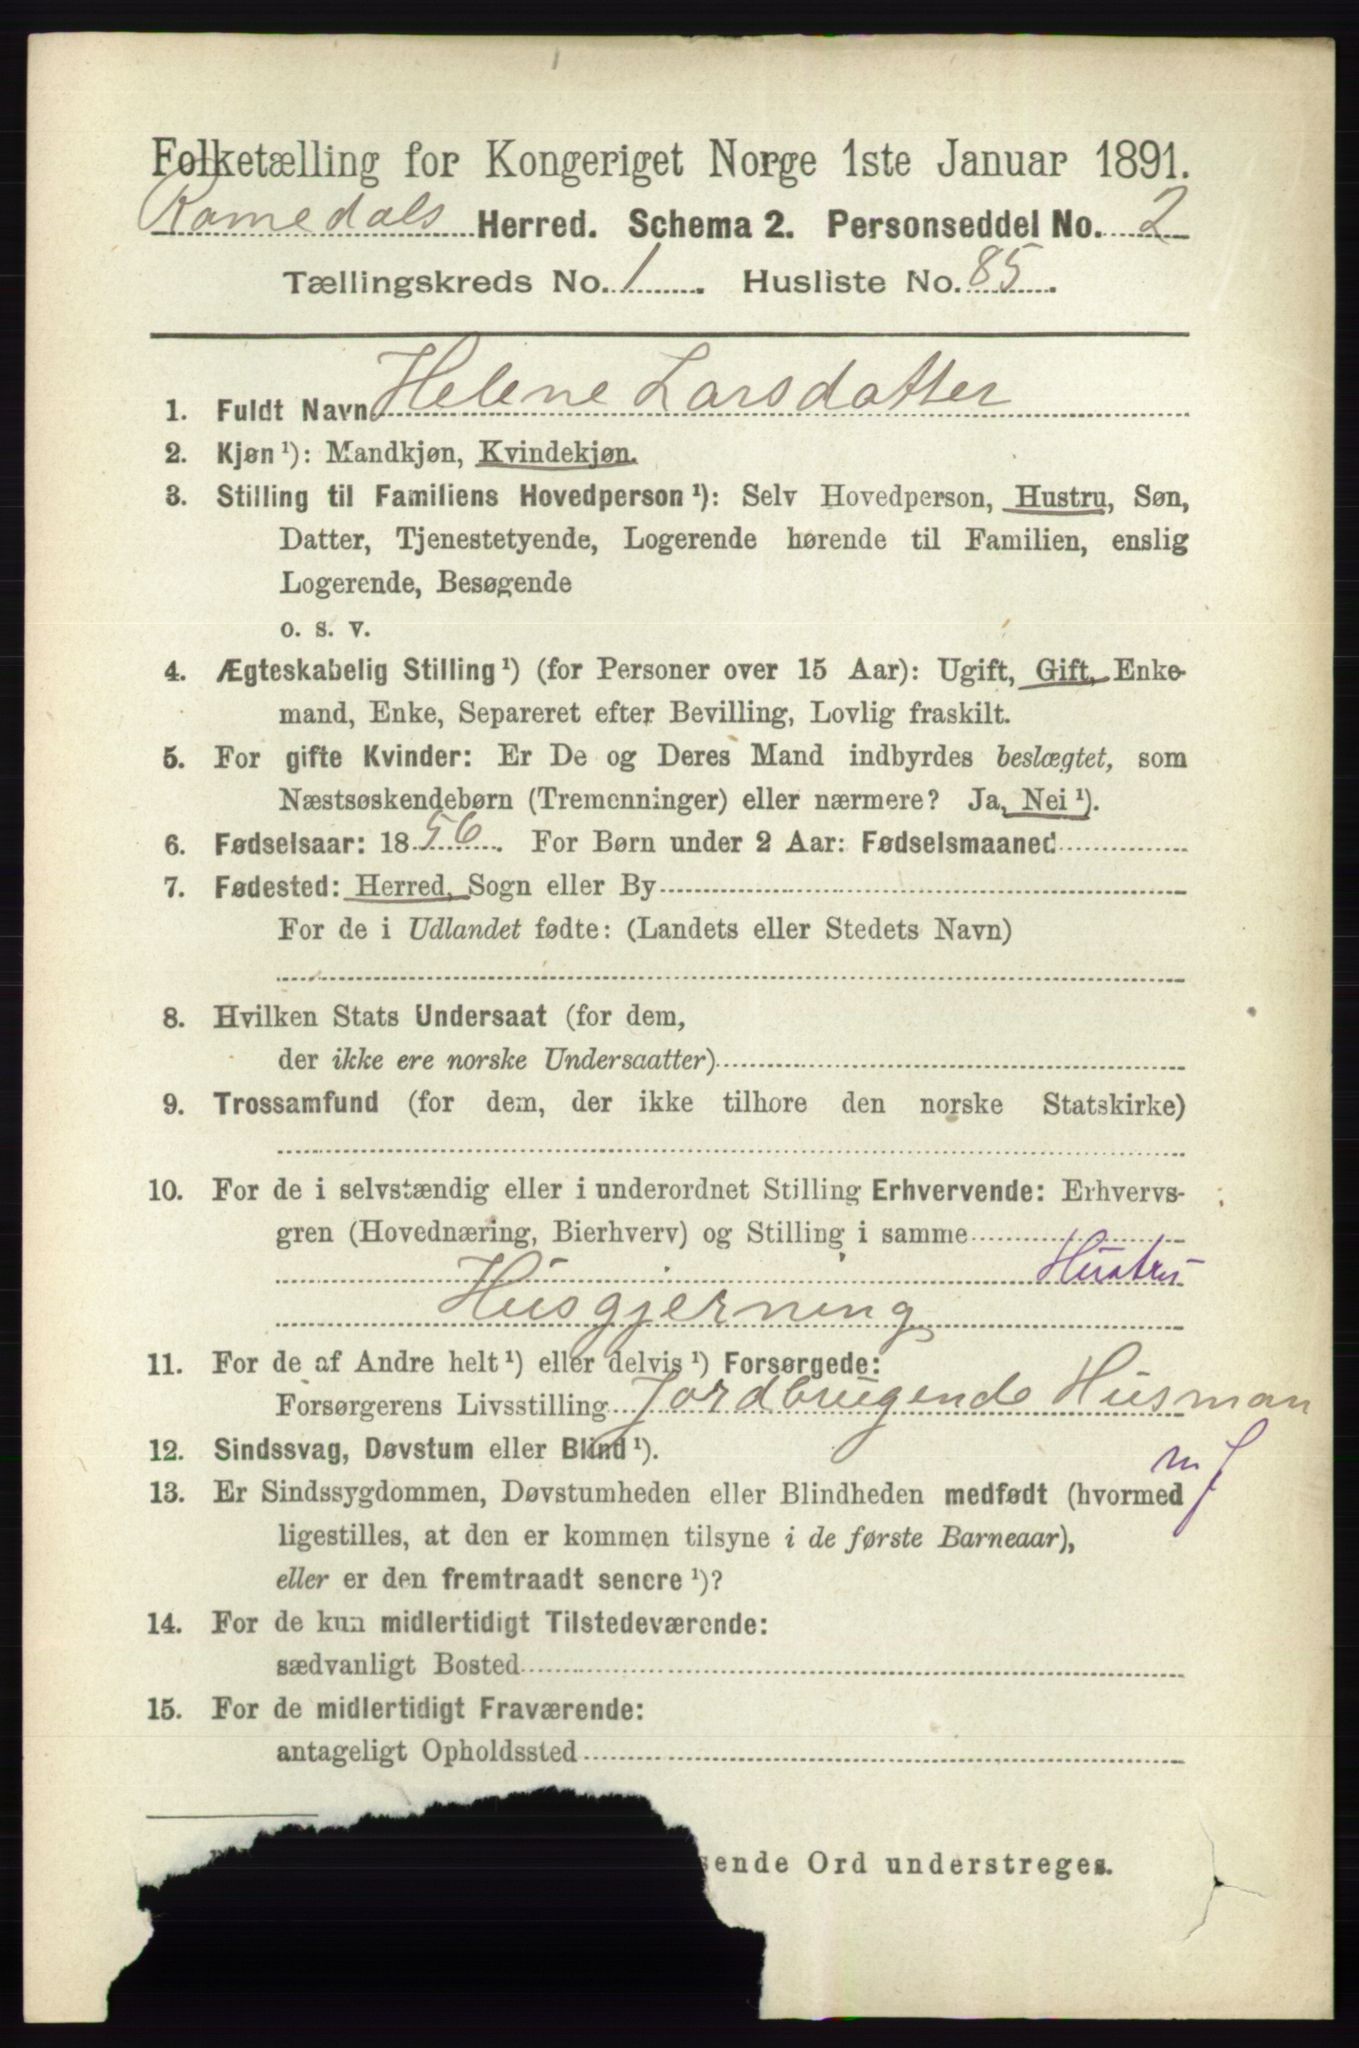 Folketælling for Kongeriget Norge 1ste Januar 1891.
Romedals Herred. Schema 2. Personseddel No. 2
Tællingskreds No. 1. Husliste No. 85.
1. Fuldt Navn Helene Larsdatter
2. Kjøn ¹): Mandkjøn, Kvindekjøn.
3. Stilling til Familiens Hovedperson ¹): Selv Hovedperson, Hustru, Søn,
Datter, Tjenestetyende, Logerende hørende til Familien, enslig
Logerende, Besøgende
o. s. v.
4. Ægteskabelig Stilling ¹) (for Personer over 15 Aar): Ugift, Gift, Enke-
mand, Enke, Separeret efter Bevilling, Lovlig fraskilt.
5. For gifte Kvinder: Er De og Deres Mand indbyrdes beslægtet, som
Næstsøskendebørn (Tremenninger) eller nærmere? Ja, Nei ¹).
6. Fødselsaar: 1856. For Børn under 2 Aar: Fødselsmaaned
7. Fødested: Herred, Sogn eller By
For de i Udlandet fødte: (Landets eller Stedets Navn)
8. Hvilken Stats Undersaat (for dem,
der ikke ere norske Undersaatter)
9. Trossamfund (for dem, der ikke tilhøre den norske Statskirke)
10. For de i selvstændig eller i underordnet Stilling Erhvervende: Erhvervs-
gren (Hovednæring, Bierhverv) og Stilling i samme
Hustru
Husgjerning
11. For de af Andre helt ¹) eller delvis ¹) Forsørgede:
Forsørgerens Livsstilling Jordbrugende Husman
12. Sindssvag, Døvstum eller Blind ¹).
m J
13. Er Sindssygdommen, Døvstumheden eller Blindheden medfødt (hvormed
ligestilles, at den er kommen tilsyne i de første Barneaar),
eller er den fremtraadt senere ¹)?
14. For de kun midlertidigt Tilstedeværende:
sædvanligt Bosted
15. For de midlertidigt Fraværende:
antageligt Opholdssted
sende Ord understreges.